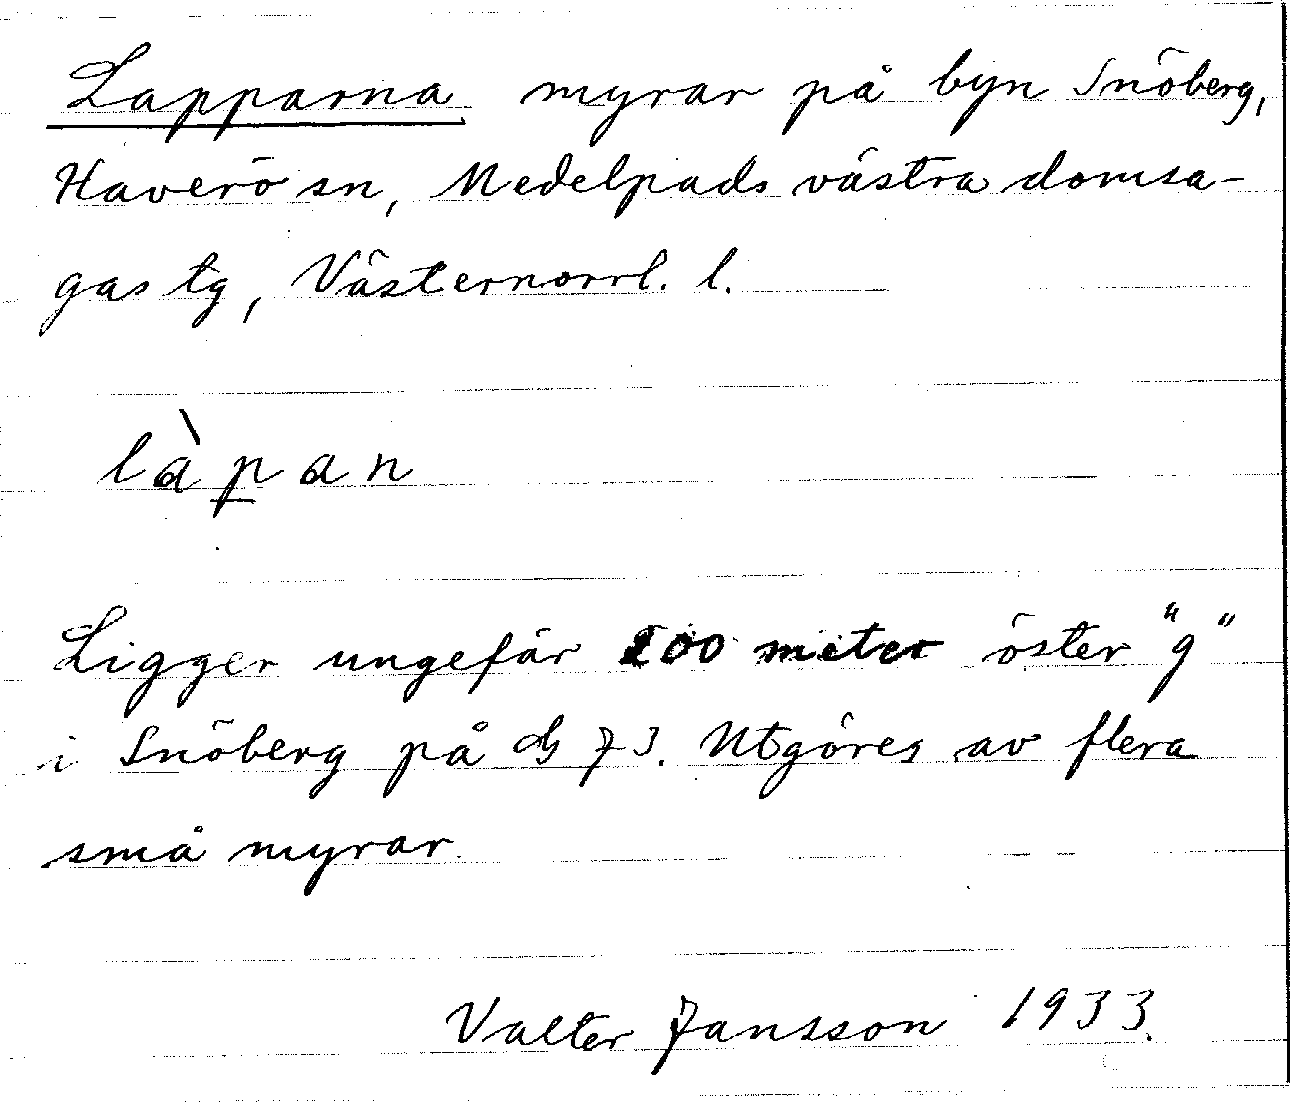 Lapparna myrar på byn Snöberg,
Haverö sn, Medelpads västra domsa-
gas tg, Västernorrl. l.
làpan
Ligger ungefär 200 meter öster "g"
i Snöberg på 73. Utgöres av flera
små myrar.
Valter Jansson 1933.